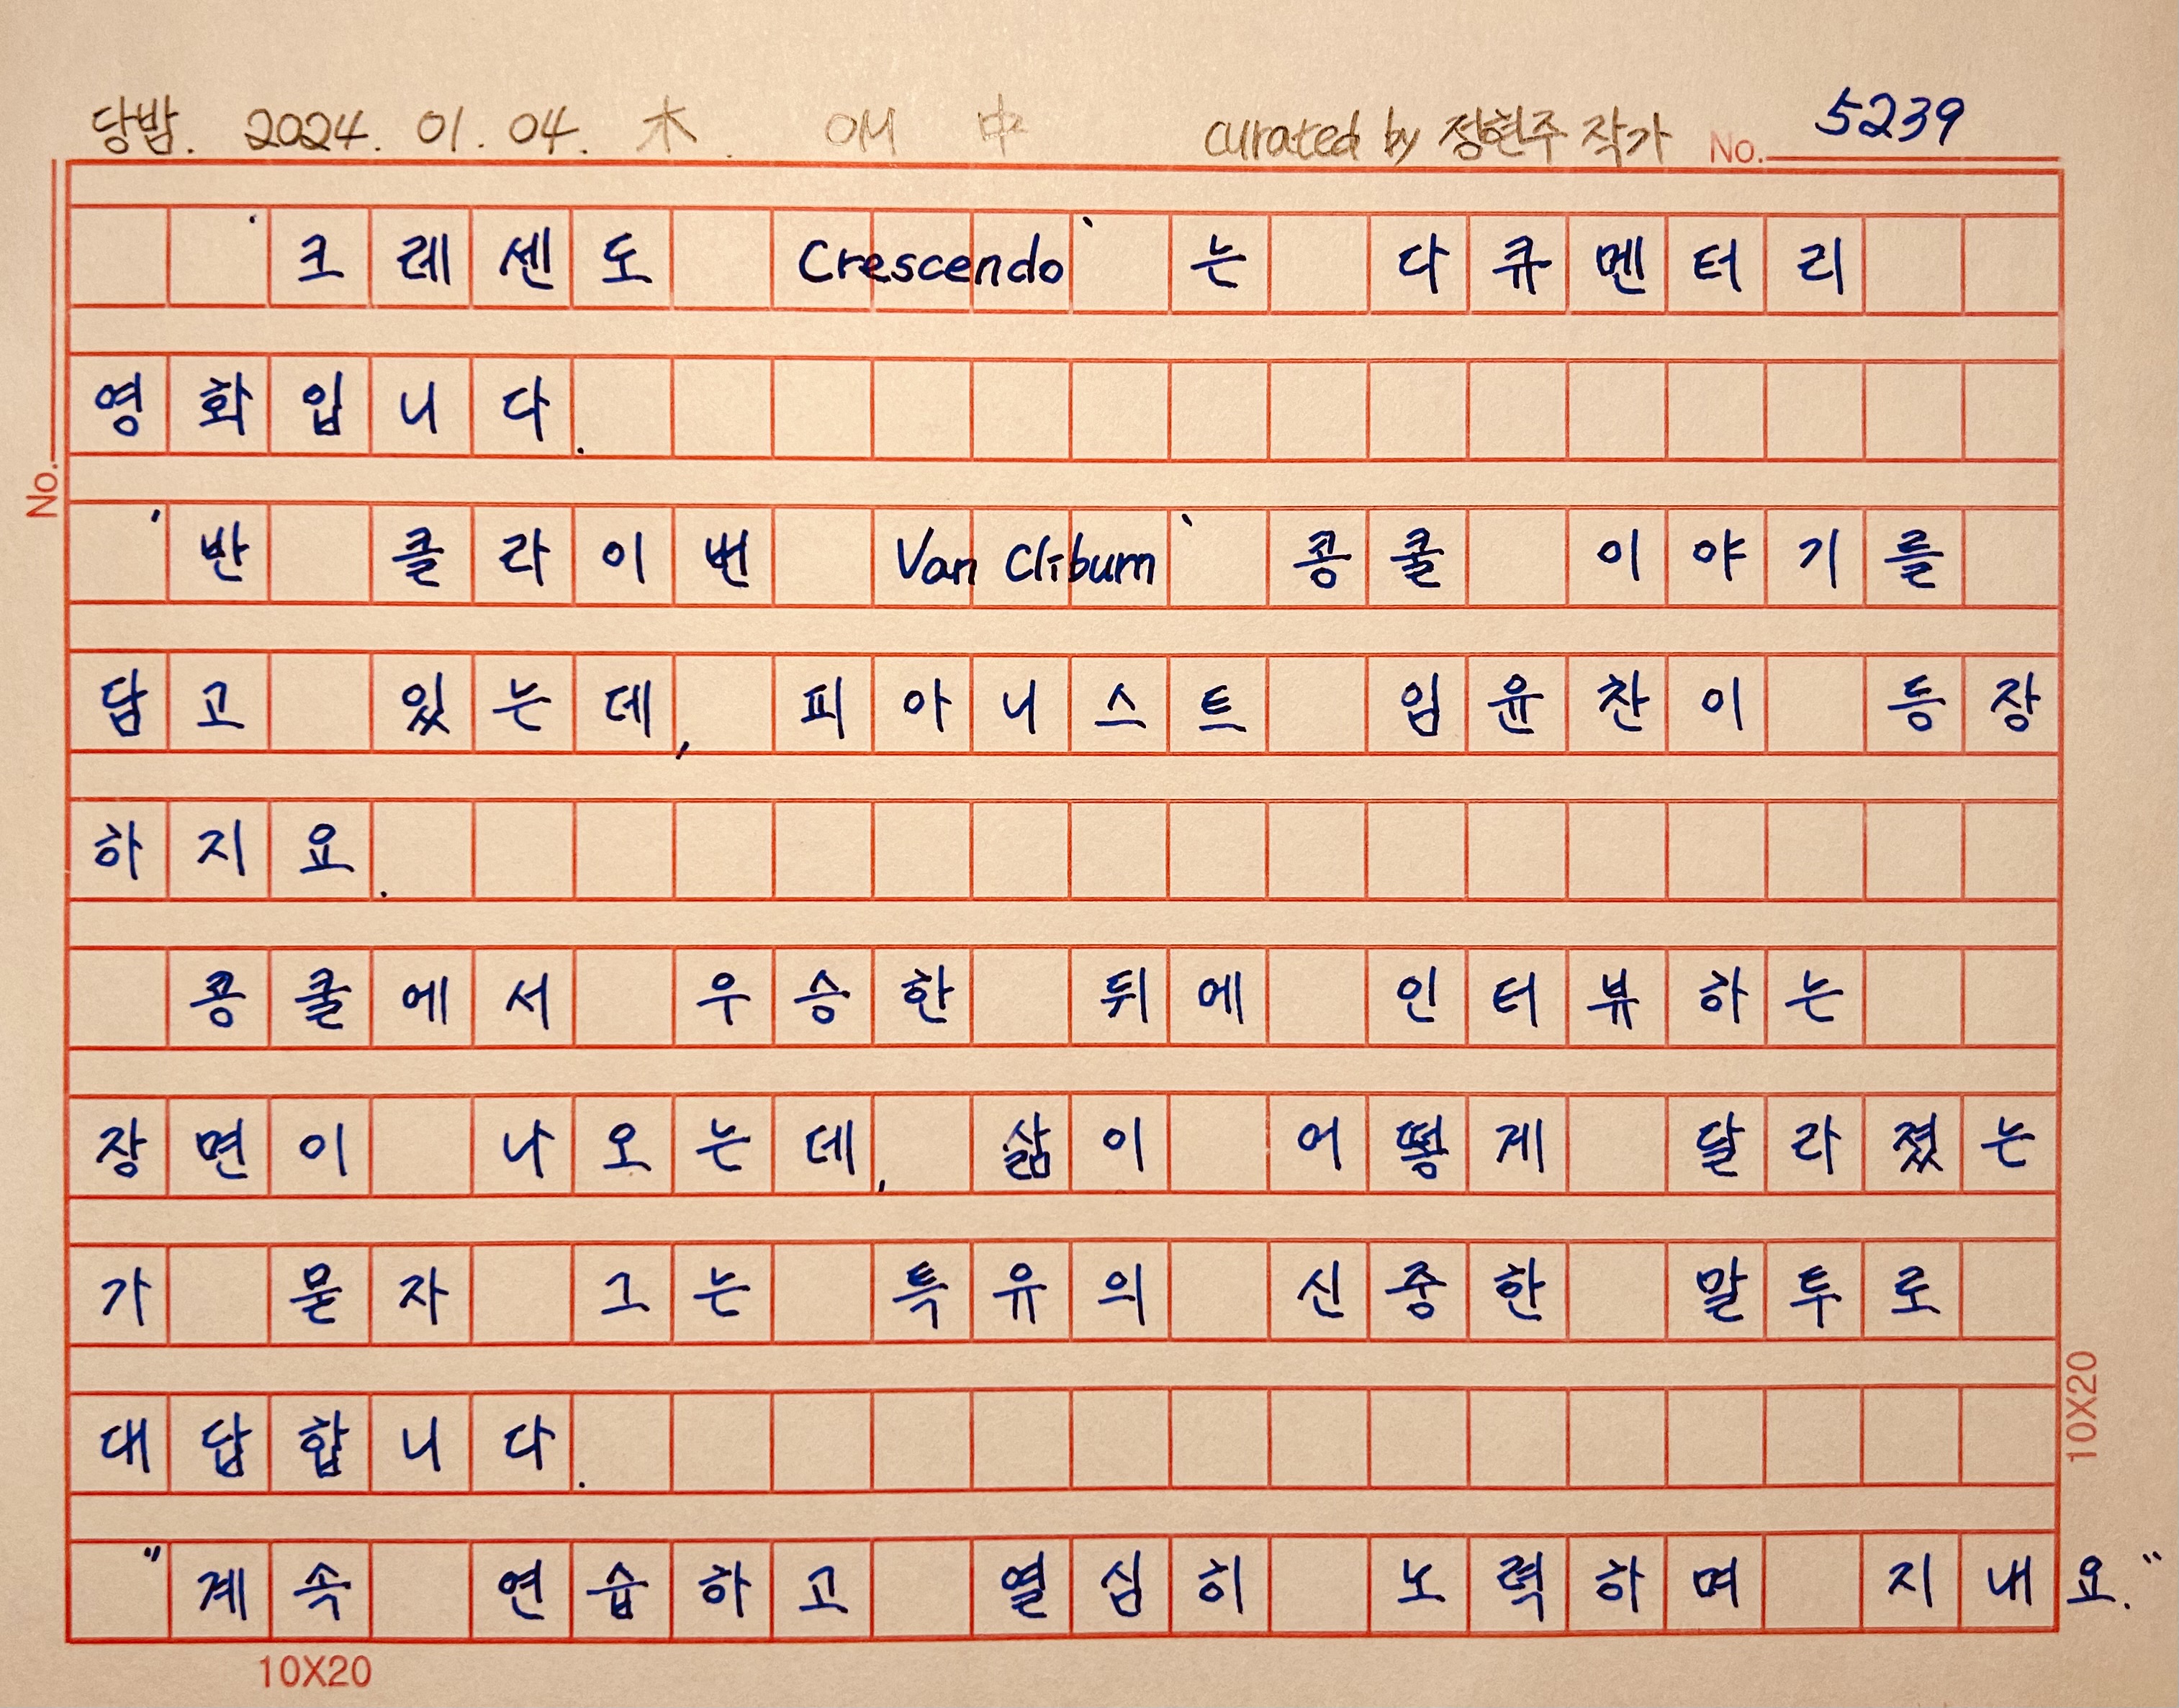 당밤. 2024. 01. 04. 木. OH 中 curated by 정현주 작가 No. 5239
'크레센도 Crescendo'는 다큐멘터리
영화입니다.
No.
'반 클라이번 Van Cliburn' 콩쿨 이야기를
담고 있는데, 피아니스트 임윤찬이 등장
하지요.
콩쿨에서 우승한 뒤에 인터뷰하는
장면이 나오는데, 삶이 어떻게 달라졌는
가 묻자 그는 특유의 신중한 말투로
대답합니다.
10X20
"계속 연습하고 열심히 노력하며 지내요."
10X20